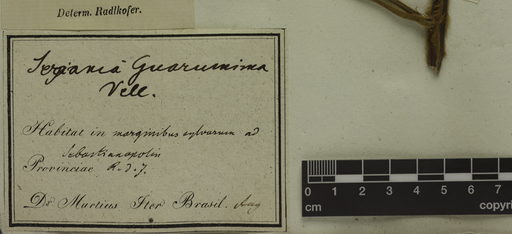 Determ. Radlkofer.
Serjania Guarumima
Vell.
Habitat in marginibus sylvarum ad
Sebastianopolin
Provinciae R. d. J.
Dr Martius Iter Brasil.
0 1 2 3 4 5 6 7
cm
copyri